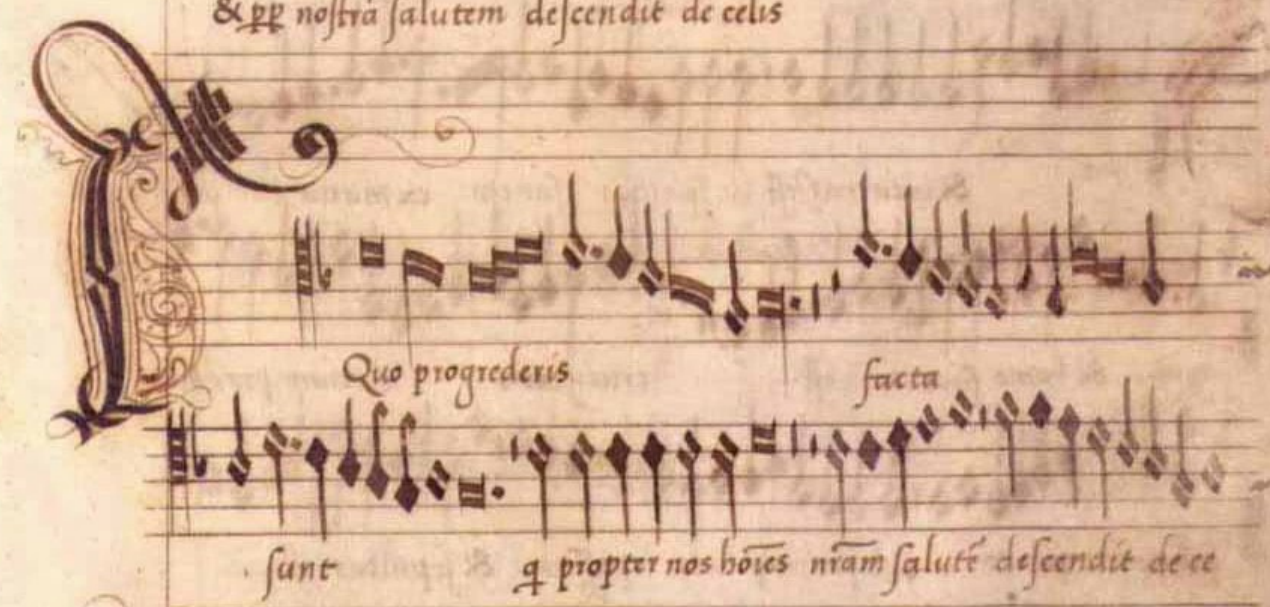 & pp nostrā salutem descendit de celis
Quo progrederis facta
sunt q propter nos hoīes nr̄am salutē descendit de ce